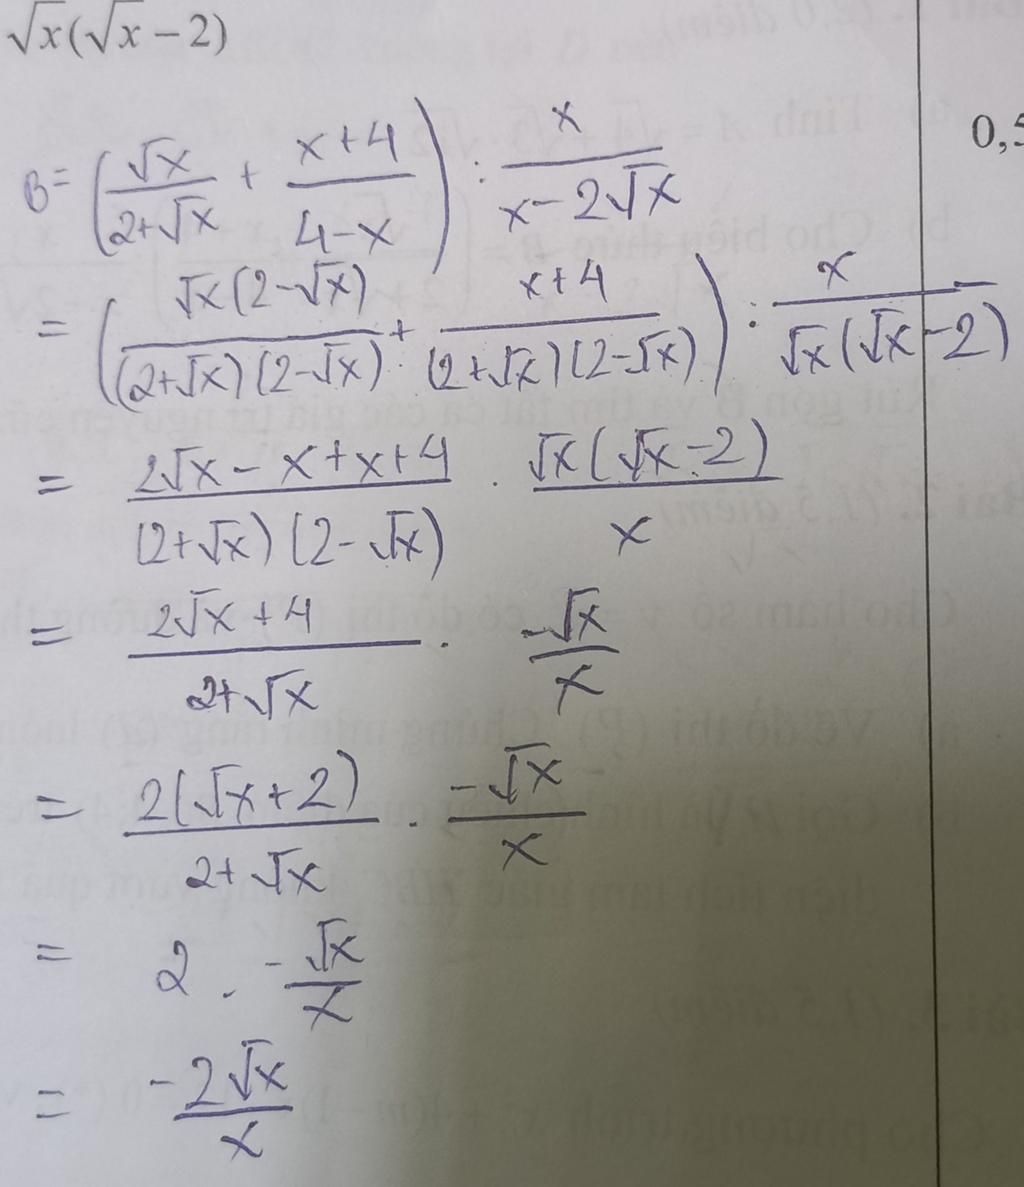 √x(√x − 2)
0,5
B = (√x/(2+√x) + (x+4)/(4−x)) : x/(x−2√x)
= (√x(2−√x)/((2+√x)(2−√x)) + (x+4)/((2+√x)(2−√x))) : x/(√x(√x−2))
= (2√x − x + x + 4)/((2+√x)(2−√x)) . √x(√x−2)/x
= (2√x + 4)/(2+√x) . −√x/x
= 2(√x+2)/(2+√x) . −√x/x
= 2 . −√x/x
= −2√x/x